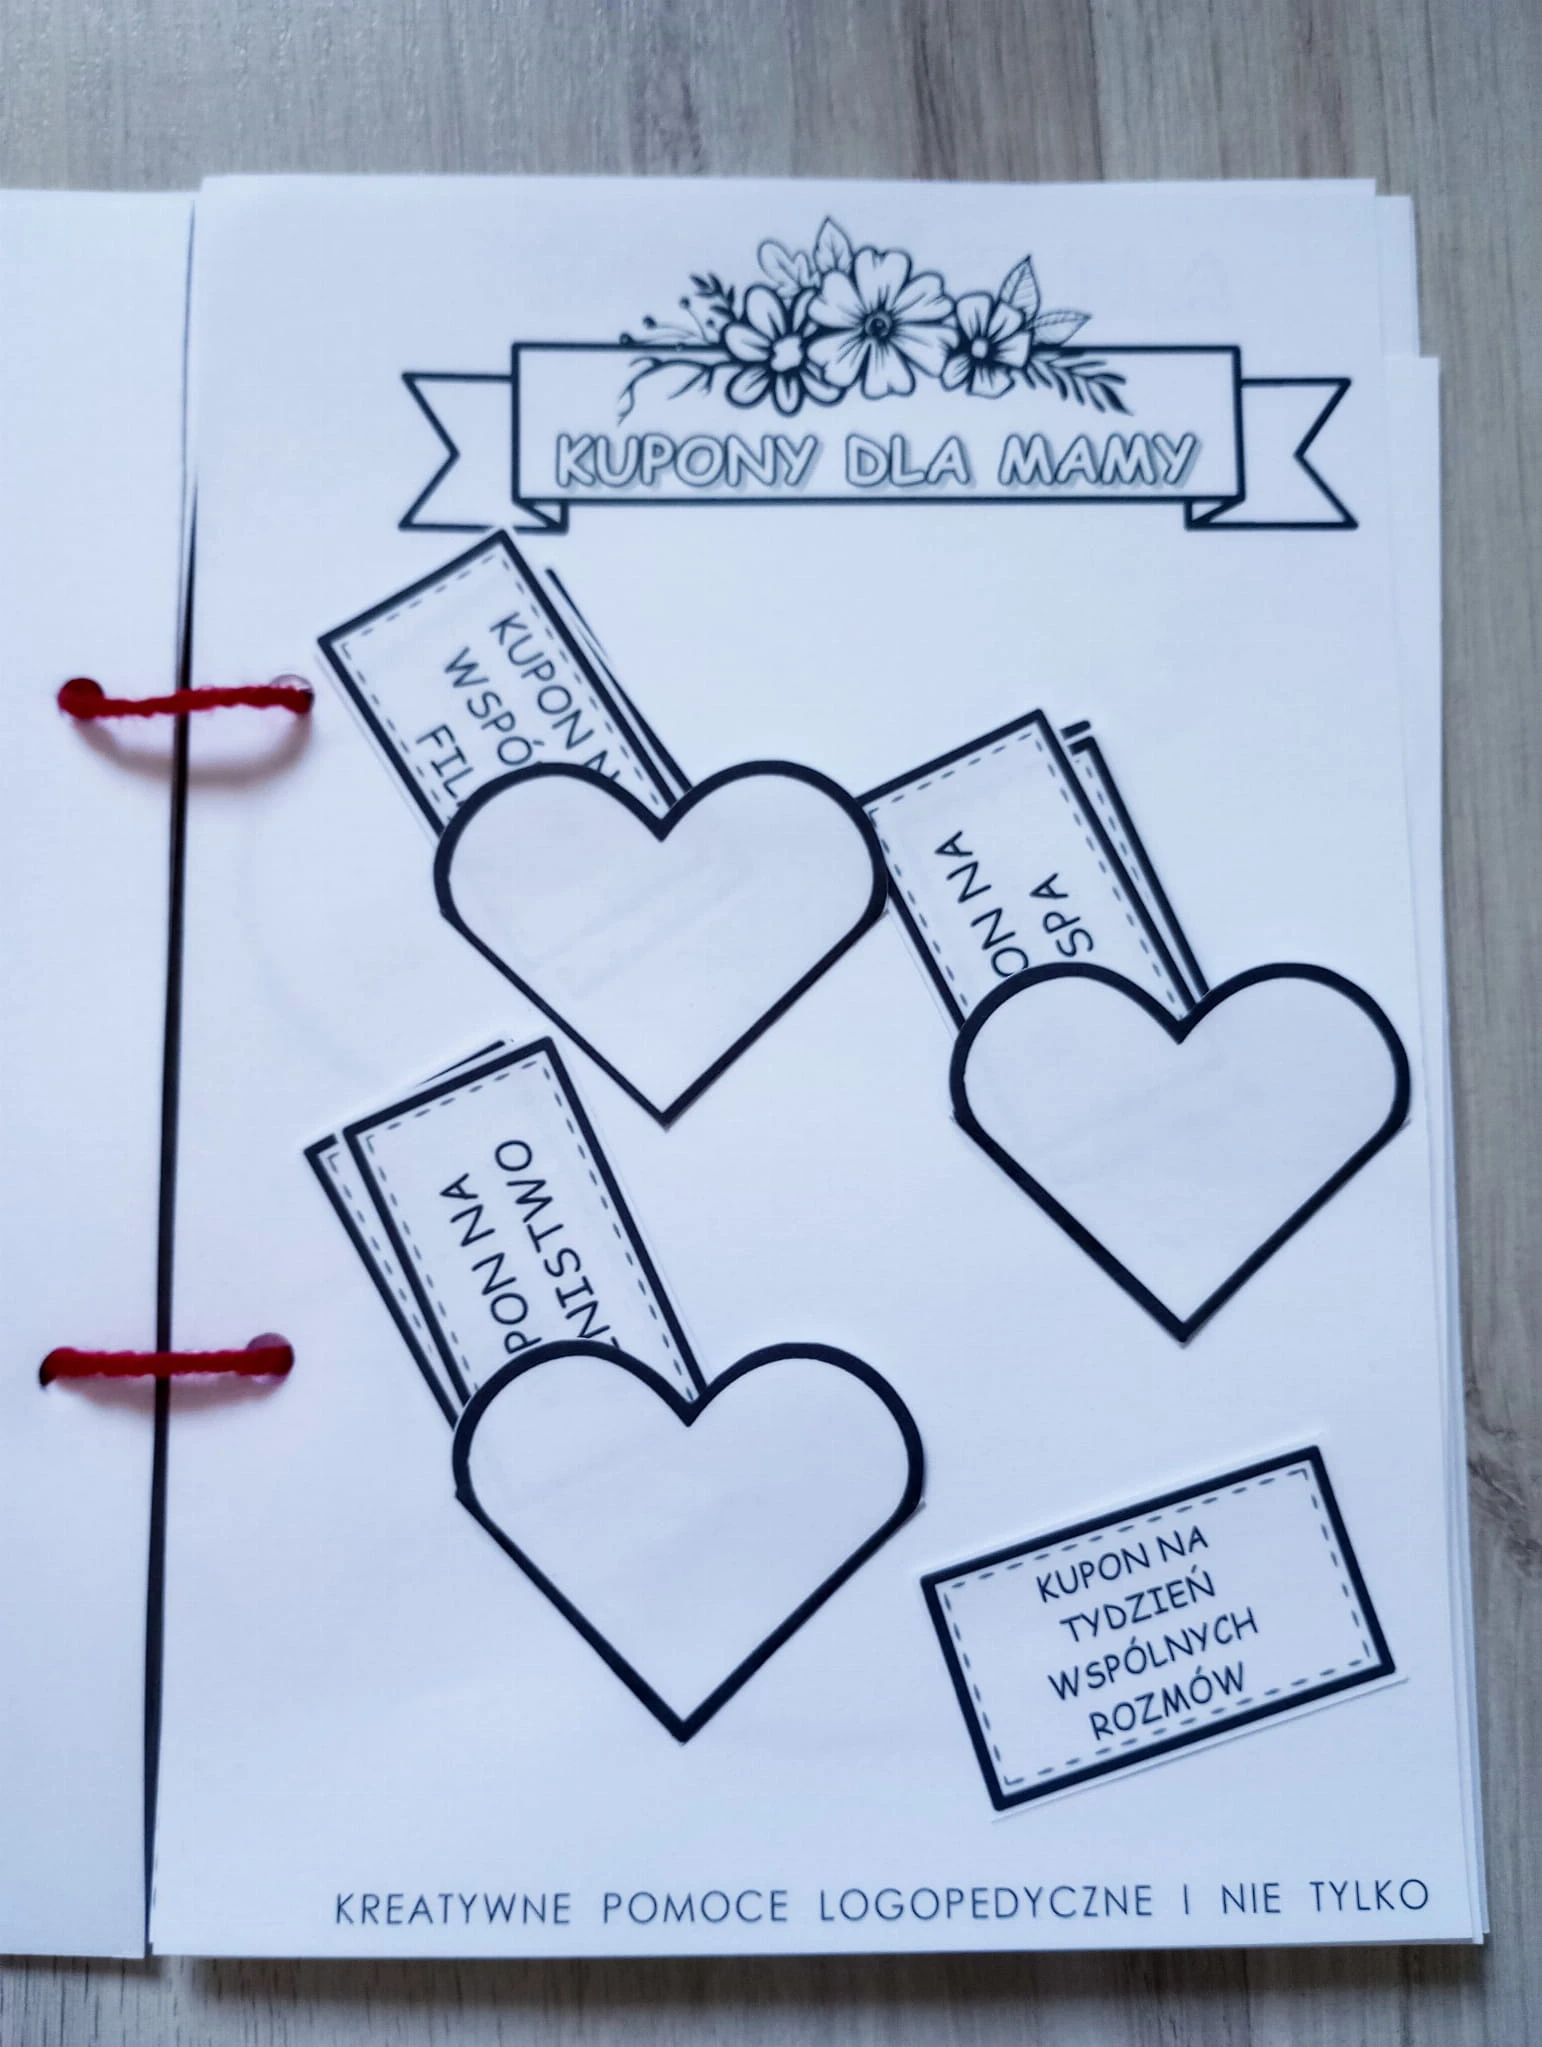 KUPONY DLA MAMY
KUPON
NA
SPA
NA
KUPON NA
TYDZIEŃ
WSPÓLNYCH
ROZMÓW
KREATYWNE POMOCE LOGOPEDYCZNE I NIE TYLKO